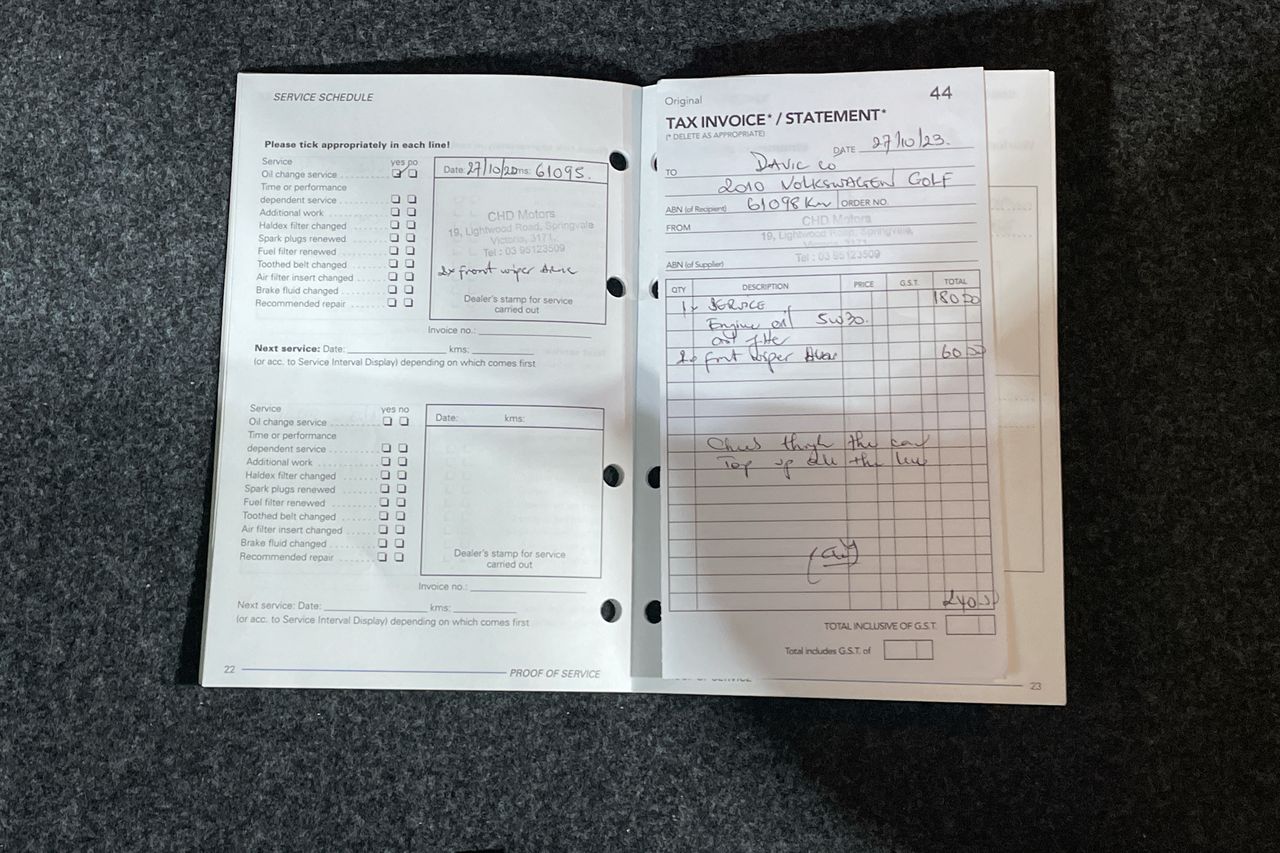 SERVICE SCHEDULE
Please tick appropriately in each line!
Service yes no
Oil change service
Time or performance
dependent service
Additional work
Haldex filter changed
Spark plugs renewed
Fuel filter renewed
Toothed belt changed
Air filter insert changed
Brake fluid changed
Recommended repair
Date: 27/10/23 kms: 61095.
CHD Motors
19, Lightwood Road, Springvale
Victoria, 3171.
Tel : 03 95123509
2x front wiper
Dealer's stamp for service
carried out
Invoice no.:
Next service: Date: kms:
(or acc. to Service Interval Display) depending on which comes first
Service yes no
Oil change service
Time or performance
dependent service
Additional work
Haldex filter changed
Spark plugs renewed
Fuel filter renewed
Toothed belt changed
Air filter insert changed
Brake fluid changed
Recommended repair
Date: kms:
Dealer's stamp for service
carried out
Invoice no.:
Next service: Date: kms:
(or acc. to Service Interval Display) depending on which comes first
22 PROOF OF SERVICE
Original 44
TAX INVOICE* / STATEMENT*
(* DELETE AS APPROPRIATE)
DATE 27/10/23.
TO DAVIC CO
2010 VOLKSWAGEN GOLF
ABN (of Recipient) 61098 Km ORDER NO.
FROM CHD Motors
19, Lightwood Road, Springvale,
Victoria, 3171.
Tel : 03 95123509
ABN (of Supplier)
QTY DESCRIPTION PRICE G.S.T. TOTAL
1x SERVICE 180 00
Engine oil 5W30.
oil filter
2x front wiper 60 00
the car
Top up all the
240 00
TOTAL INCLUSIVE OF G.S.T.
Total includes G.S.T. of
23